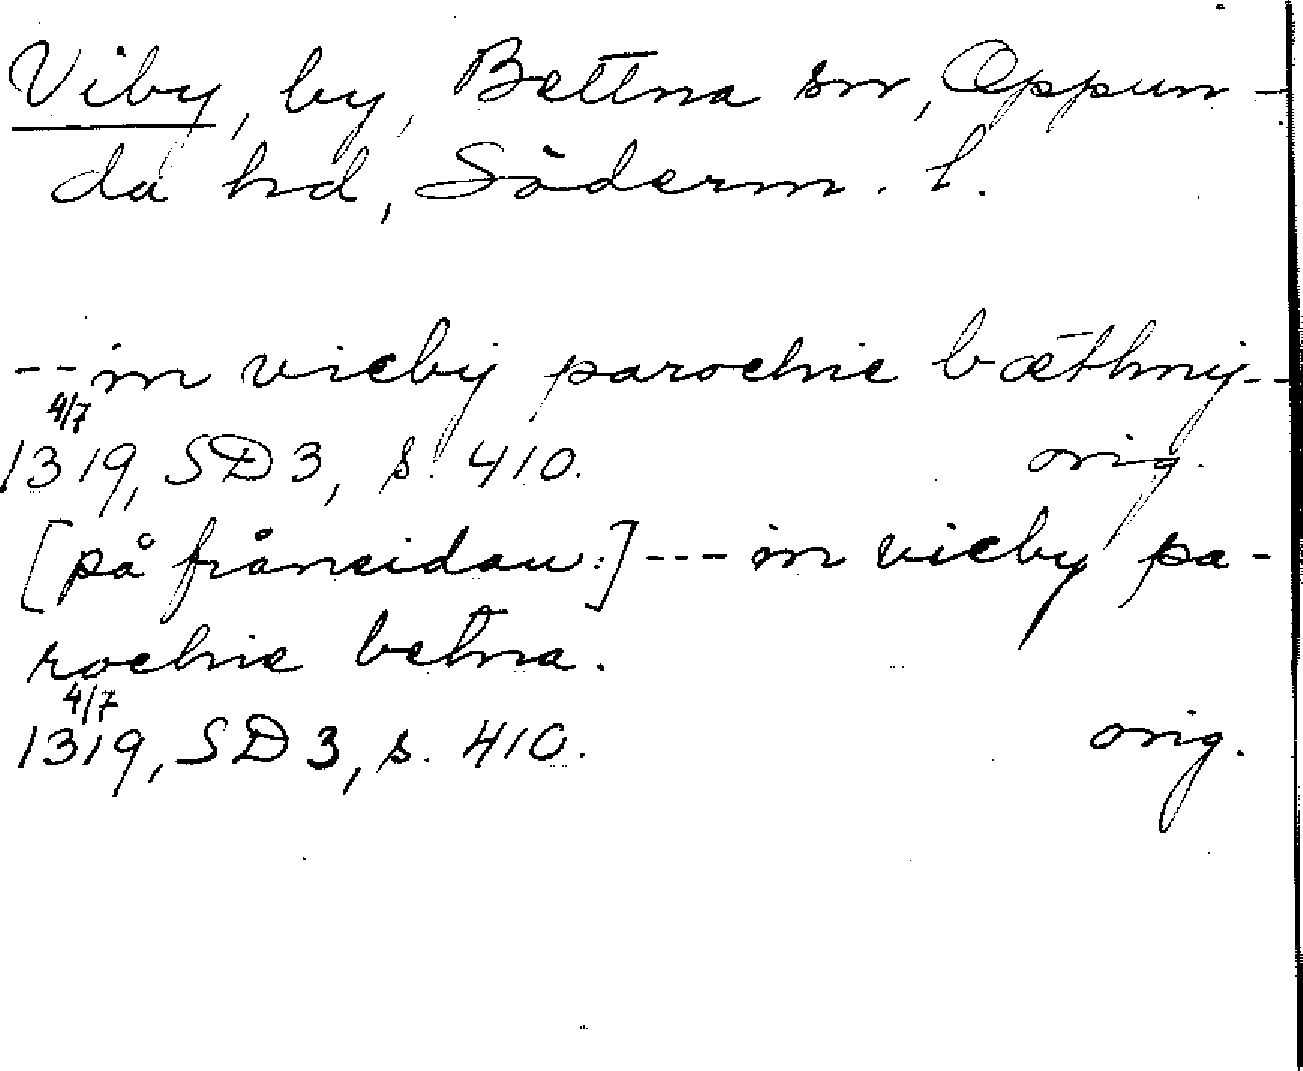 Viby, by, Bettna sn, Oppun-
da hd, Söderm. l.
-- in vieby parochie bæthny --
4/7
1319, SD 3, s. 410. orig.
[på frånsidan:] --- in vieby pa-
rochie betna.
4/7
1319, SD 3, s. 410. orig.